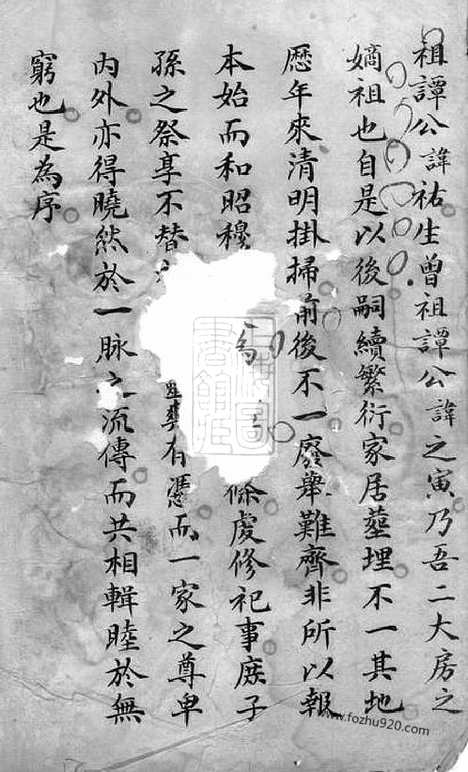 祖譚公諱祐生曾祖譚公諱之寅乃吾二大房之
嫡祖也自是以後嗣續繁衍家居塟埋不一其地
歷年來清明掛掃前後不一廢舉難齊非所以報
本始而和昭穆 為 條處修祀事庶子
孫之祭享不替 有憑而一家之尊卑
內外亦得曉然於一脉之流傳而共相輯睦於無
窮也是為序
www.fozhu920.com